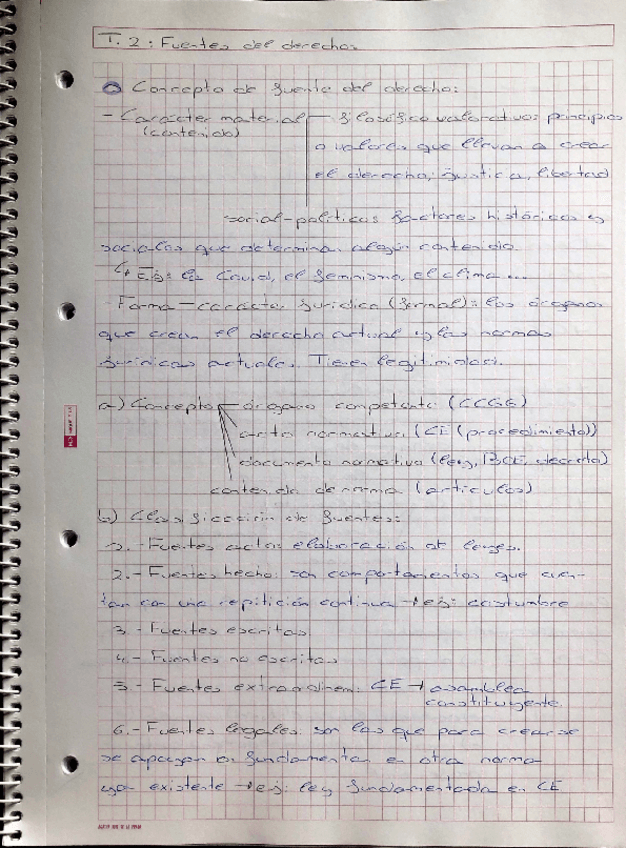 T. 2: Fuentes del derecho
Concepto de fuente del derecho:
- Carácter material — filosófico valorativo: principios
(contenido)
o valores que llevan a crear
el derecho; justicia, libertad
social-políticas factores históricos y
sociales que determina algún contenido.
↳ Ej: la Covid, el feminismo, el clima...
Forma - carácter jurídica (formal) = los órganos
que crean el derecho actual y las normas
jurídicas actuales. Tienen legitimidad.
a) Concepto — órgano competente (CCGG)
acto normativo (CE (procedimiento))
documento normativo (ley, BOE, decreto)
contenido de norma (artículos)
b) Clasificación de fuentes:
1.- Fuentes acto: elaboración de leyes.
2.- Fuentes hecho: son comportamientos que cuen-
tan con una repitición continua → ej: costumbre
3.- Fuentes escritas
4.- Fuentes no escritas
5.- Fuentes extraordinem: CE → asamblea
constituyente.
6.- Fuentes legales: son las que para crearse
se apoyan o fundamentan en otra norma
ya existente → ej: ley fundamentada en CE